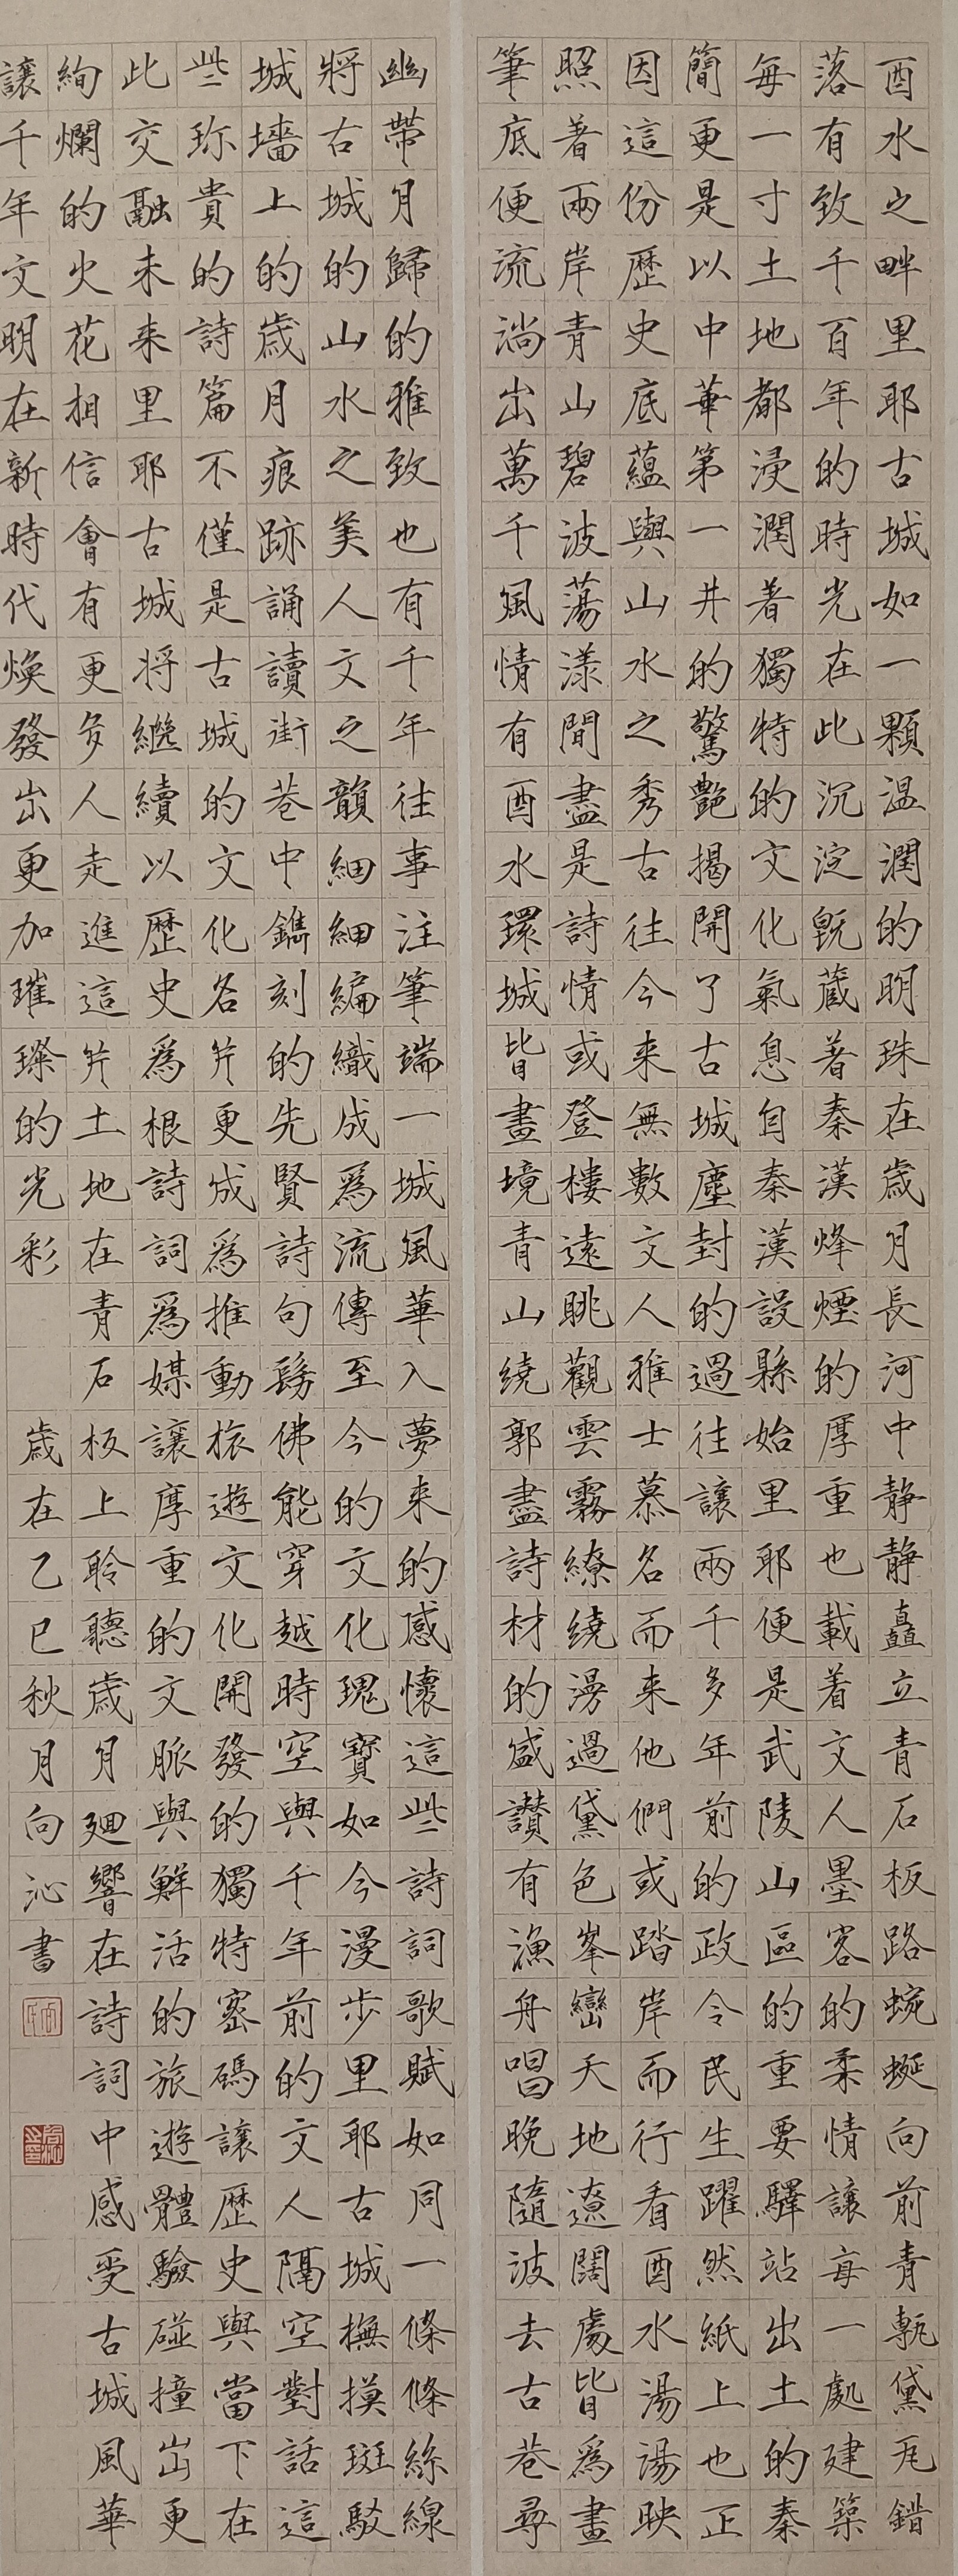 酉水之畔里耶古城如一顆溫潤的明珠在歲月長河中静静矗立青石板路蜿蜒向前青甎黛瓦錯
落有致千百年的時光在此沉淀旣藏著秦漢烽煙的厚重也載着文人墨客的柔情讓每一處建築
每一寸土地都浸潤著獨特的文化氣息自秦漢設縣始里耶便是武陵山區的重要驛站出土的秦
簡更是以中華第一井的驚艷揭開了古城塵封的過往讓兩千多年前的政令民生躍然紙上也正
因這份歷史底蘊與山水之秀古往今来無數文人雅士慕名而来他們或踏岸而行看酉水湯湯映
照著兩岸青山碧波蕩漾間盡是詩情或登樓遠眺觀雲霧繚繞漫過黛色峯巒天地遼闊處皆爲畫
筆底便流淌出萬千風情有酉水環城皆畫境青山繞郭盡詩材的盛讃有漁舟唱晚隨波去古巷尋
幽帶月歸的雅致也有千年往事注筆端一城風華入夢来的感懷這些詩詞歌賦如同一條條絲線
將古城的山水之美人文之韻細細編織成爲流傳至今的文化瑰寶如今漫步里耶古城撫摸斑駁
城墻上的歲月痕跡誦讀街巷中鐫刻的先賢詩句髣佛能穿越時空與千年前的文人隔空對話這
些珍貴的詩篇不僅是古城的文化名片更成爲推動旅遊文化開發的獨特密碼讓歷史與當下在
此交融未来里耶古城将繼續以歷史爲根詩詞爲媒讓厚重的文脈與鮮活的旅遊體驗碰撞出更
絢爛的火花相信會有更多人走進這片土地在青石板上聆聽歲月廻響在詩詞中感受古城風華
讓千年文明在新時代煥發出更加璀璨的光彩
歲在乙巳秋月向沁書